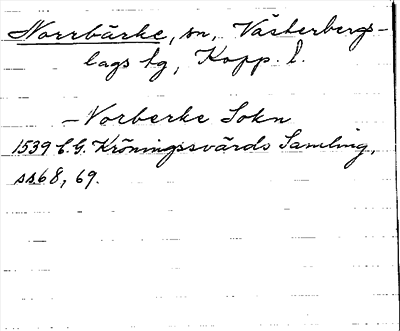 Norrbärke, sn, Västerbergs-
lags tg, Kopp. l.
—Norberke Sokn
1539 C.G. Kröningssvärds Samling,
ss 68, 69.